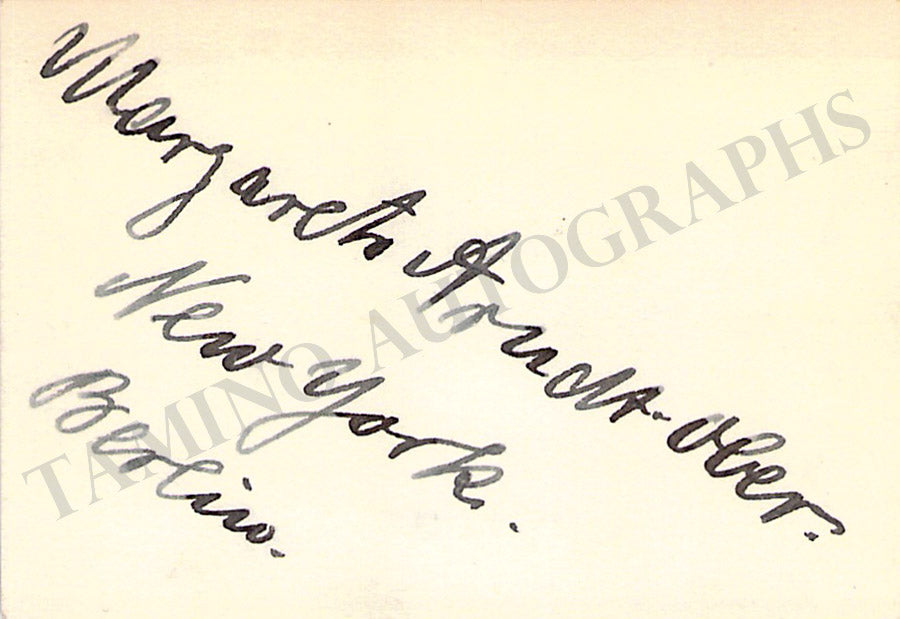 Margareth Arndt-Ober.
New York.
Berlin.
TAMINO AUTOGRAPHS